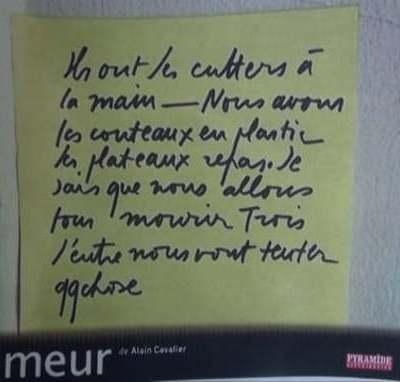 Ils ont les cutters à
la main — Nous avons
les couteaux en plastic
les plateaux repas. Je
sais que nous allons
tous mourir Trois
d'entre nous vont tenter
qqchose
meur de Alain Cavalier
PYRAMIDE